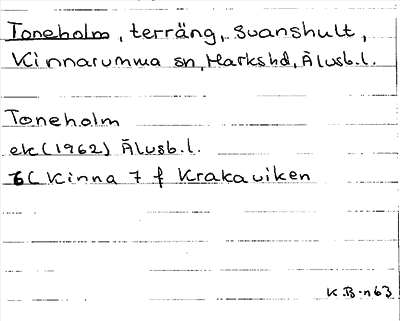 Toneholm, terräng, Svanshult,
Kinnarumma sn, Marks hd, Älvsb.l.
Toneholm
ek (1962) Älvsb.l.
6C Kinna 7 f Krakaviken
K.B-n 63